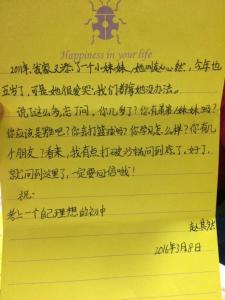 Happiness in your life
2011年,我家又添了一个小妹妹,她叫赵心然,今年也
五岁了,可是她很爱哭,我们都拿她没办法。
说了这么多,忘了问,你几岁了?你有弟弟妹妹吗?
你应该是雅吧?你喜打篮球吗?你学习怎么样?你有几
个朋友?看来,我有点打破沙锅问到底了,好了,
就问到这里了,一定要回信哦!
祝:
考上一个自己理想的初中
赵其然
2016年3月8日